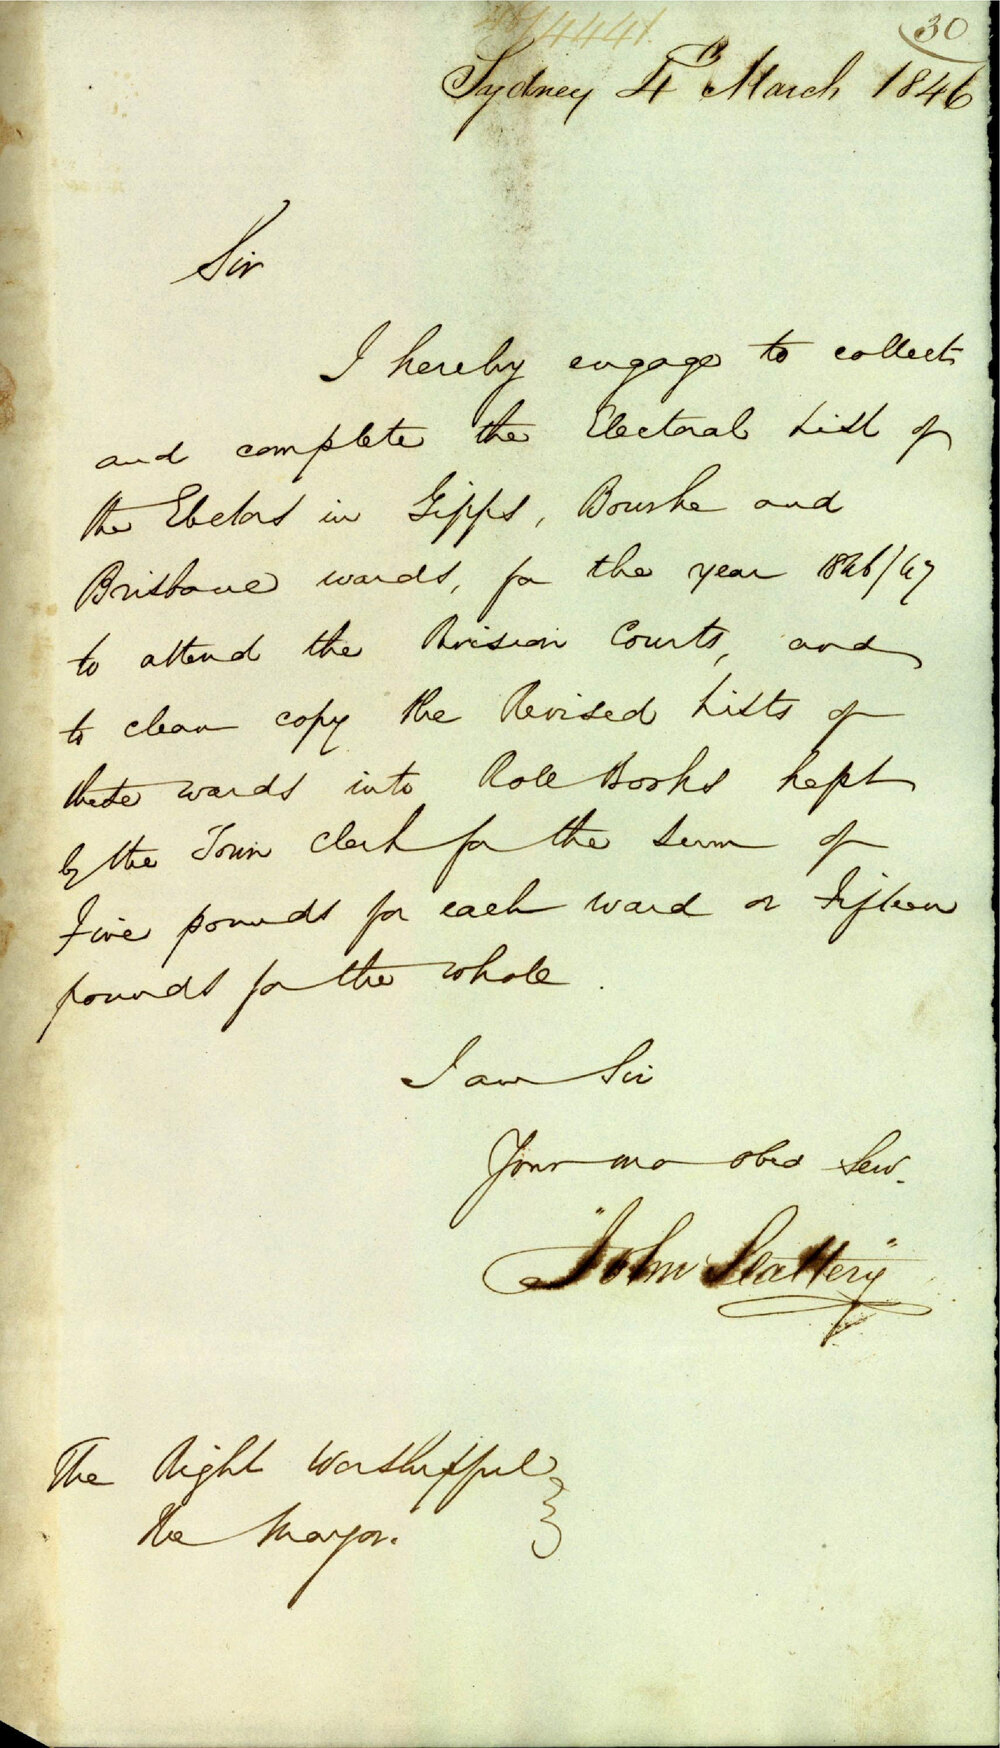 30
Sydney 4th March 1846
Sir
I hereby engage to collect
and complete the Electoral List of
the Electors in Gipps, Bourke and
Brisbane wards, for the year 1846/47
to attend the Revision Courts, and
to clean copy the Revised Lists of
these wards into Role Books kept
by the Town Clerk for the sum of
Five pounds for each ward or Fifteen
pounds for the whole.
I am Sir
Your mo obed Serv.
"John Slattery"
The Right Worshipful
the Mayor.